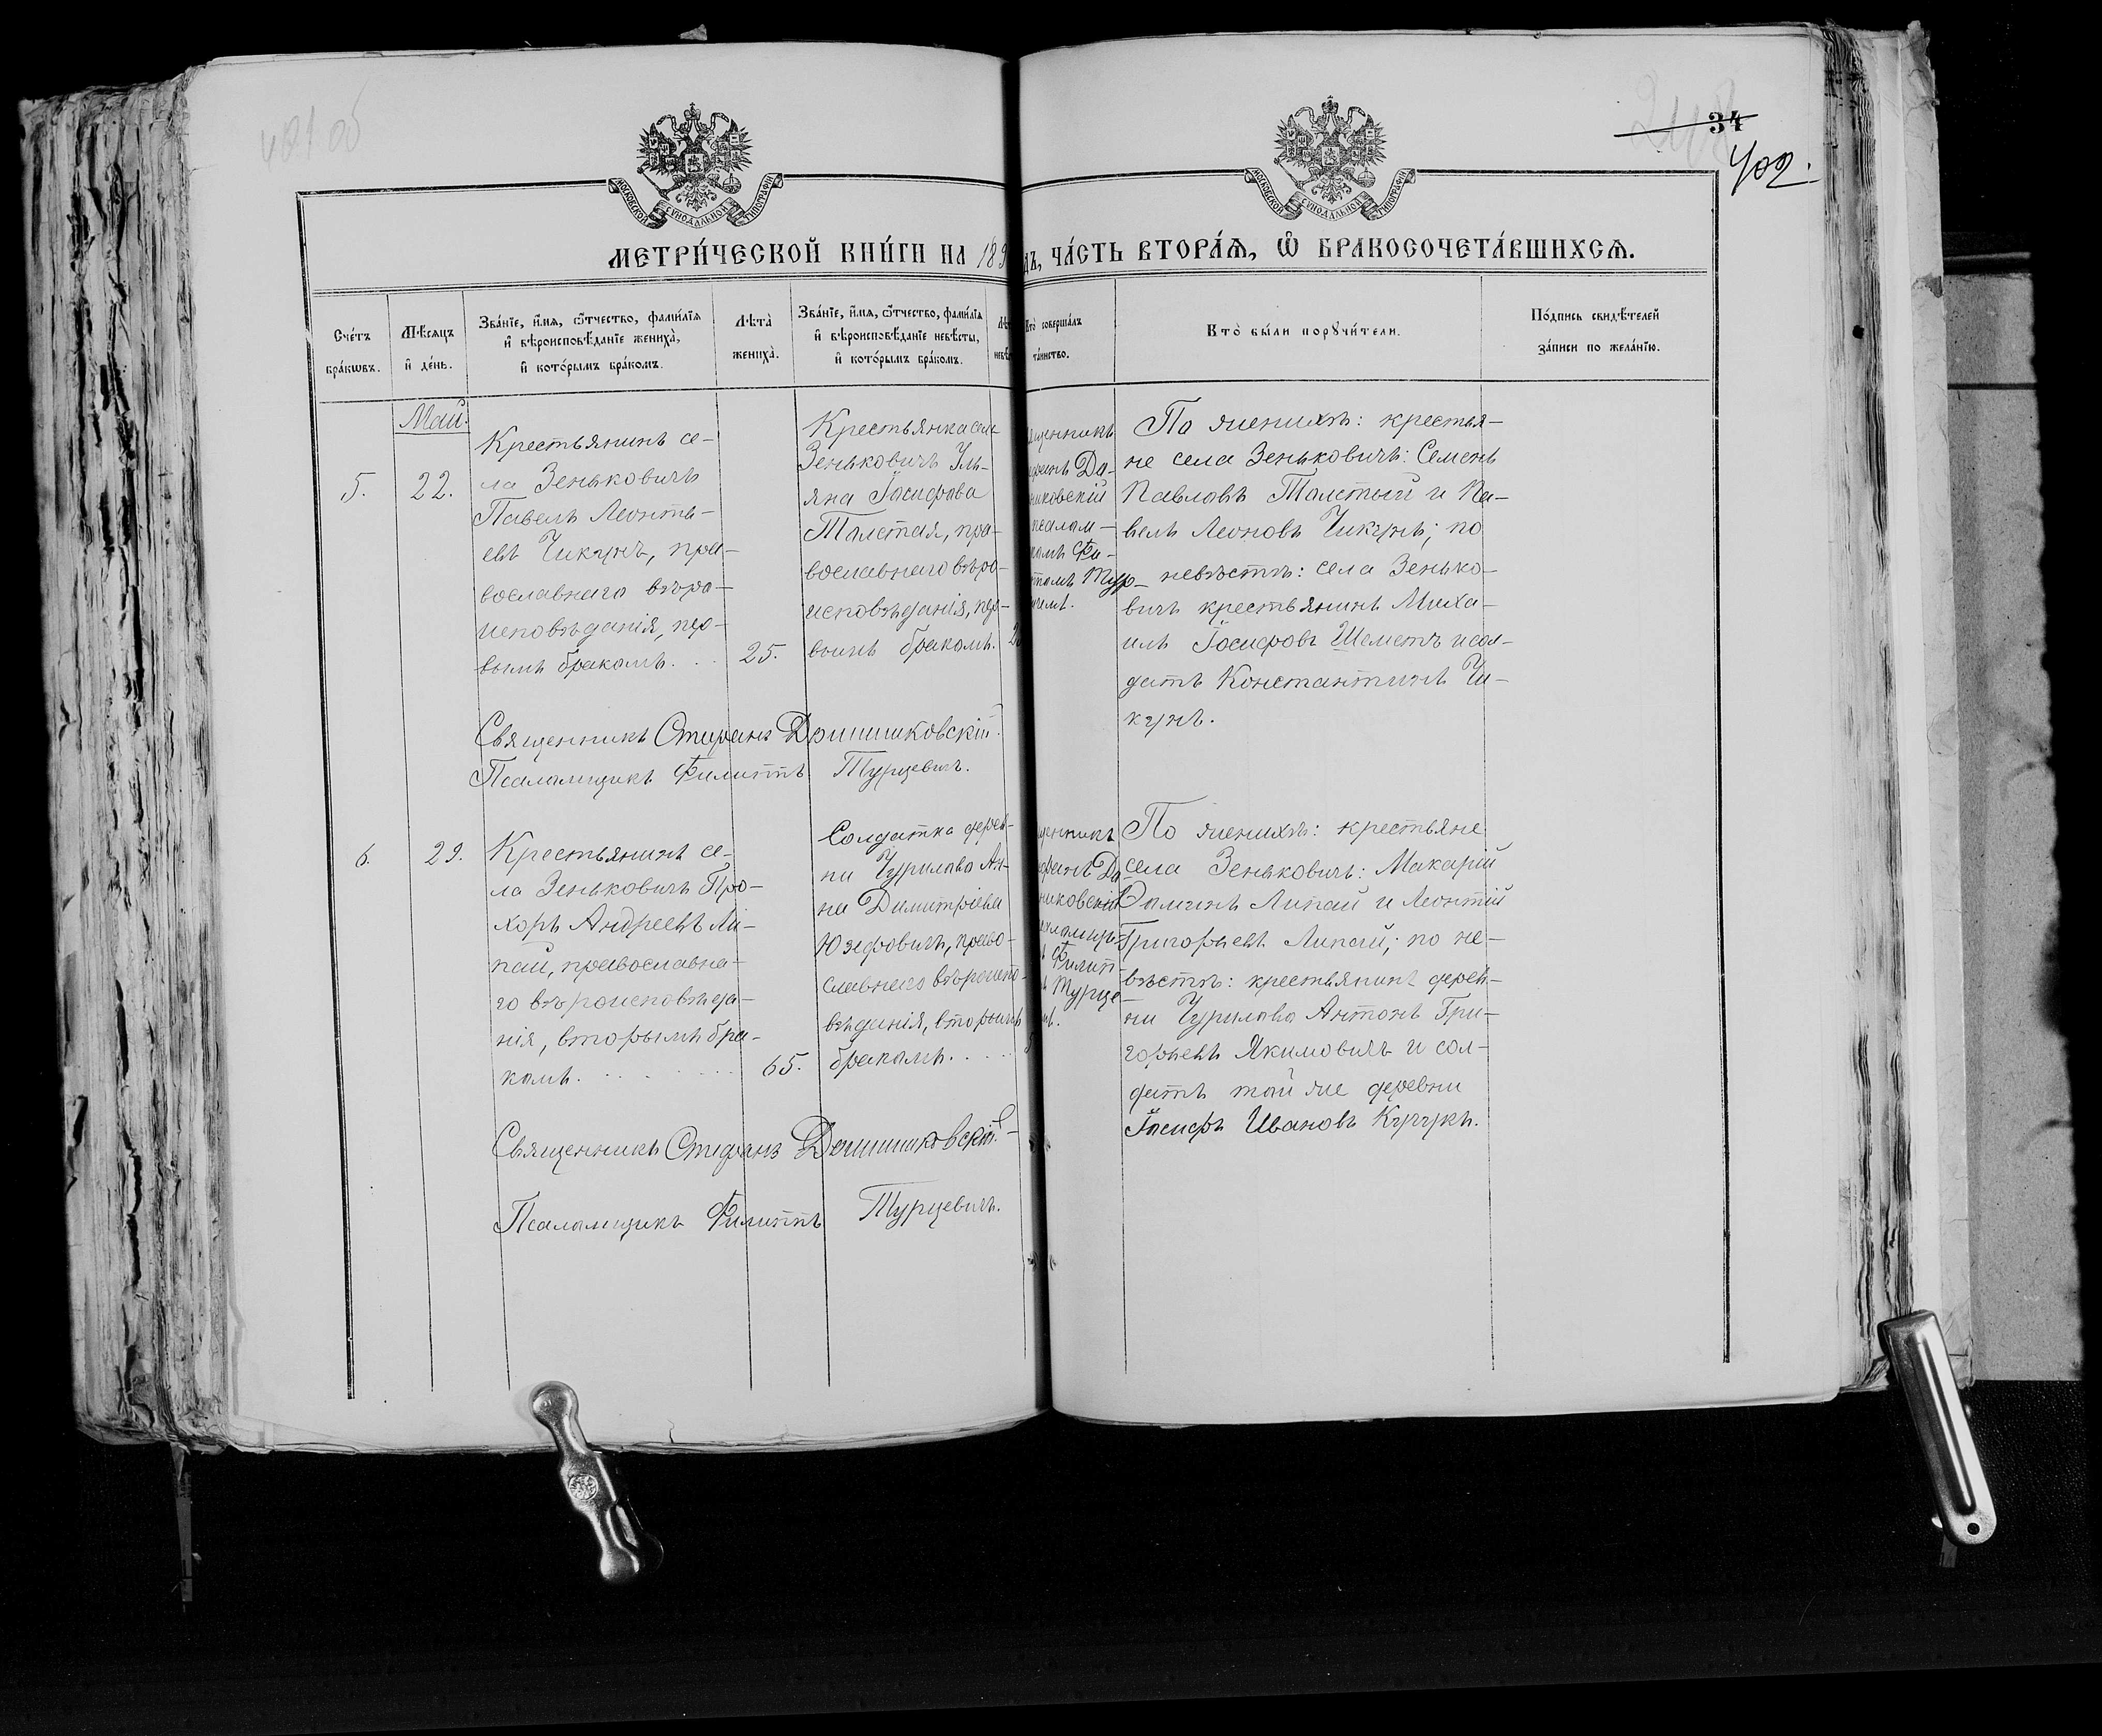 34
402.
МОСКОВСКОЙ СУНОДАЛЬНОЙ ТИПОГРАФІИ
МОСКОВСКОЙ СУНОДАЛЬНОЙ ТИПОГРАФІИ
МЕТРИ́ЧЕСКОЙ КНИ́ГИ НА 189
ЧА́СТЬ ВТОРА́Я, Ѽ БРАКОСОЧЕТА́ВШИХСЯ.
Сче́тъ
бра́кѡвъ.
Мѣ́сяцъ
и҆ де́нь.
Зва́нїе, и҆́мя, ѻ҆́тчество, фами́лїя
и҆ вѣроисповѣ́данїе жениха̀,
и҆ кото́рымъ бра́комъ.
Лѣта̀
жениха̀.
Зва́нїе, и҆́мя, ѻ҆́тчество, фами́лїя
и҆ вѣроисповѣ́данїе невѣ́сты,
и҆ кото́рымъ бра́комъ.
Кто̀ соверша́лъ
та́инство.
Кто̀ бы́ли порꙋчи́тели.
По́дпись свидѣ́телей
за́писи по жела́нїю.
Май.
5.
22.
Крестьянинъ се-
ла Зеньковичъ
Павелъ Леонть-
евъ Чикунъ, пра-
вославнаго вѣро-
исповѣданія, пер-
вымъ бракомъ. . .
25.
Крестьянка села
Зеньковичъ Уль-
яна Іосифова
Толстая, пра-
вославнаго вѣро-
исповѣданія, пер-
вымъ бракомъ.
По женихѣ: крестья-
не села Зеньковичъ: Семенъ
Павловъ Толстый и Па-
велъ Леоновъ Чикунъ; по
невѣстѣ: села Зенько-
вичъ крестьянинъ Миха-
илъ Іосифовъ Шеметъ и сол-
датъ Константинъ Чи-
кунъ.
Священникъ Стефанъ
Псаломщикъ Филиппъ Турцевичъ.
6.
29.
Крестьянинъ се-
ла Зеньковичъ Про-
хоръ Андреевъ Ли-
пай, православна-
го вѣроисповѣда-
нія, вторымъ бра-
комъ.
65.
Солдатка дерев-
ни Чурилова Ан-
на Димитріева
Юзефовичъ, право-
славнаго вѣроиспо-
вѣданія, вторымъ
бракомъ. . . .
По женихѣ: крестьяне
села Зеньковичъ: Макарій
Липай и Леонтій
Григорьевъ Липай; по не-
вѣстѣ: крестьянинъ дерев-
ни Чурилова Антонъ Гри-
горьевъ Якимовичъ и сол-
датъ той же деревни
Іосифъ Ивановъ Кучукъ.
Священникъ Стефанъ
Псаломщикъ Филиппъ Турцевичъ.